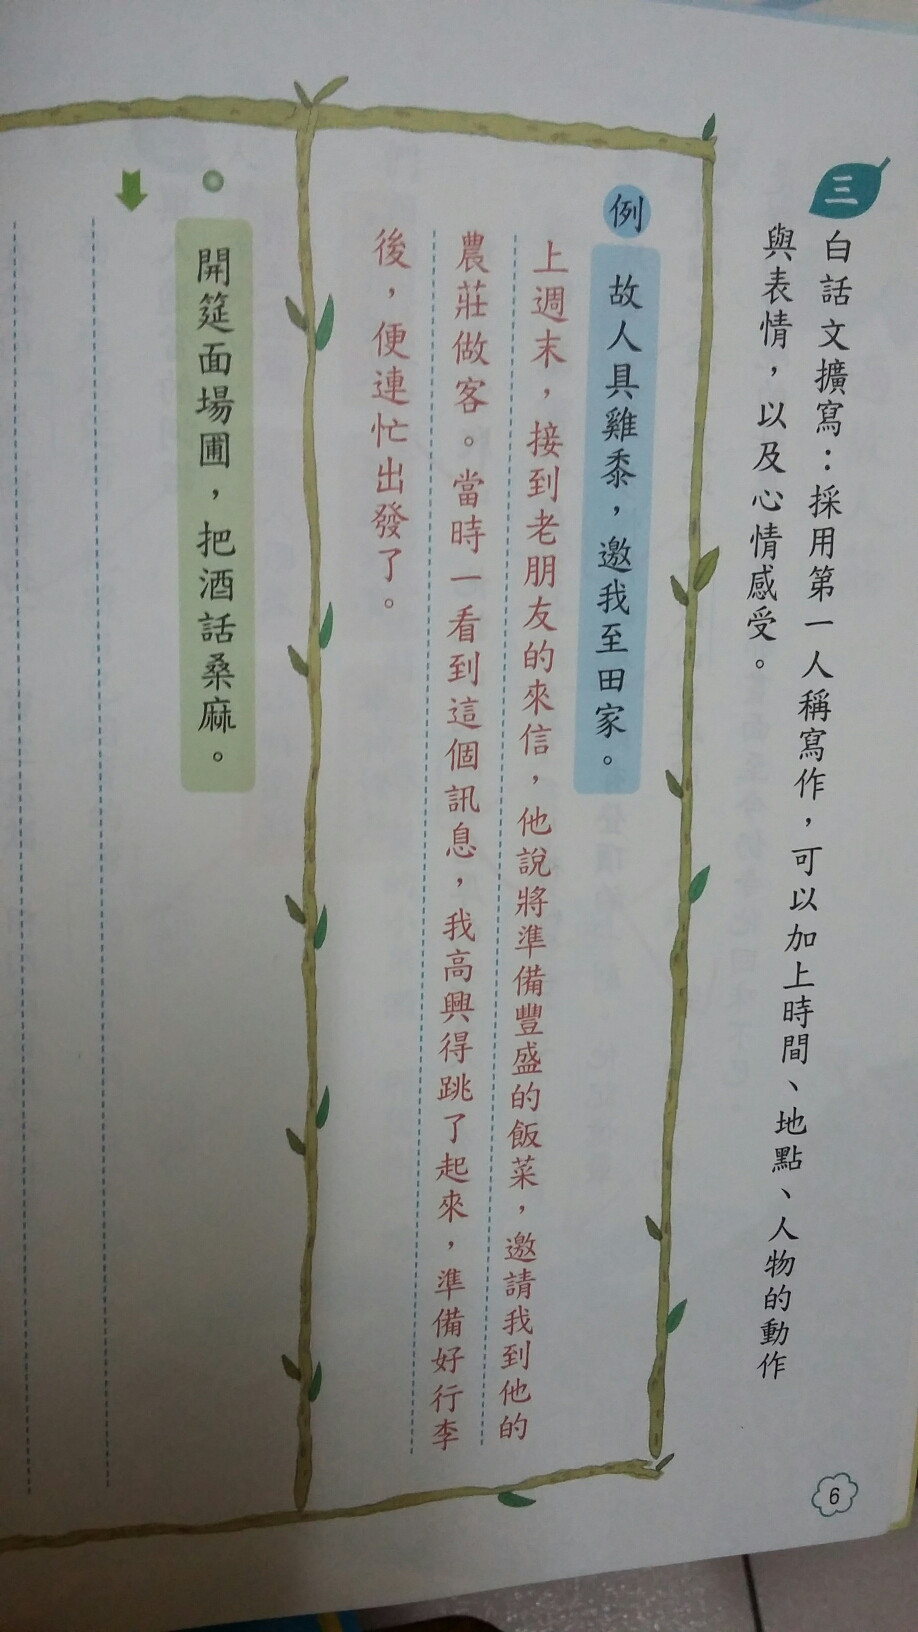 三
白話文擴寫：採用第一人稱寫作，可以加上時間、地點、人物的動作
與表情，以及心情感受。
例
故人具雞黍，邀我至田家。
上週末，接到老朋友的來信，他說將準備豐盛的飯菜，邀請我到他的
農莊做客。當時一看到這個訊息，我高興得跳了起來，準備好行李
後，便連忙出發了。
開筵面場圃，把酒話桑麻。
6